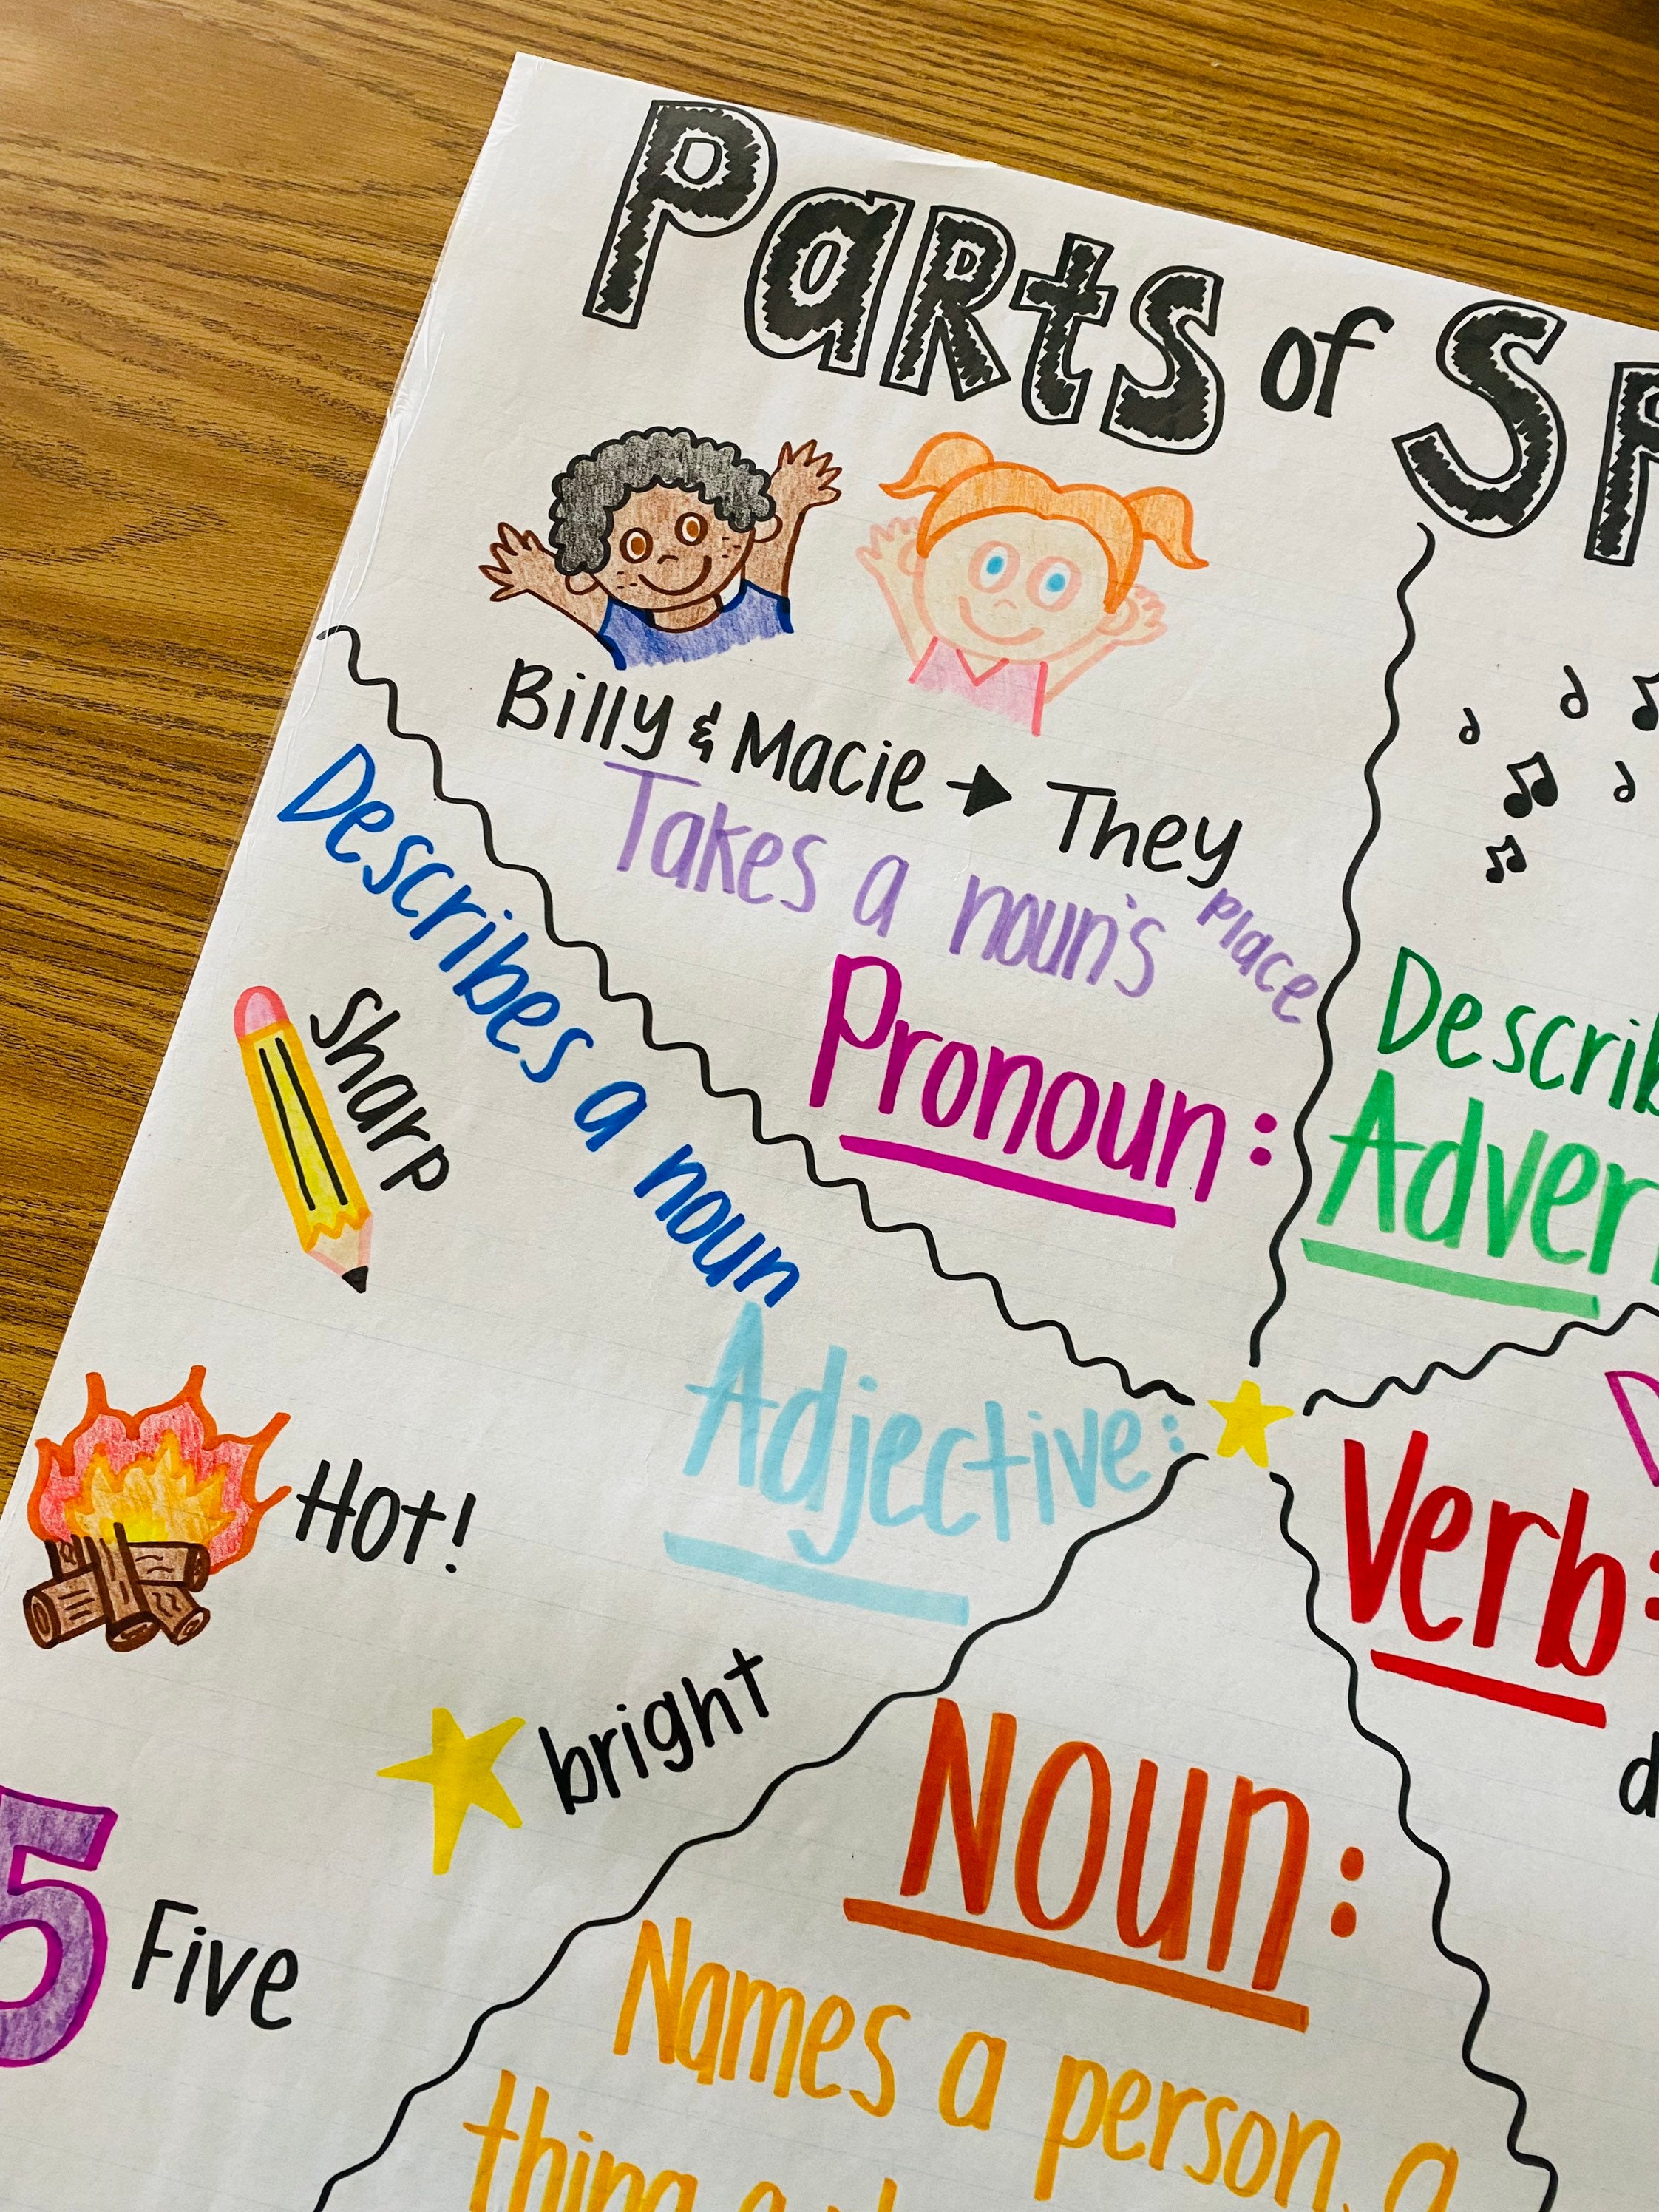 Parts of
Billy & Macie → They
Takes a noun's place
Pronoun:
Describes a noun
Adjective:
sharp
Hot!
bright
5 Five
Verb:
Noun:
Names a person, a
thing